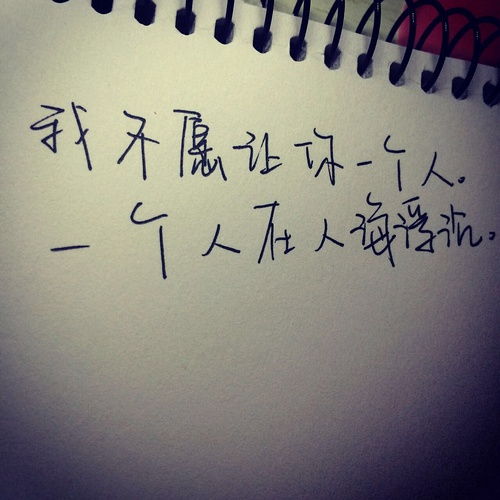 我不愿让你一个人。
一个人在人海浮沉。